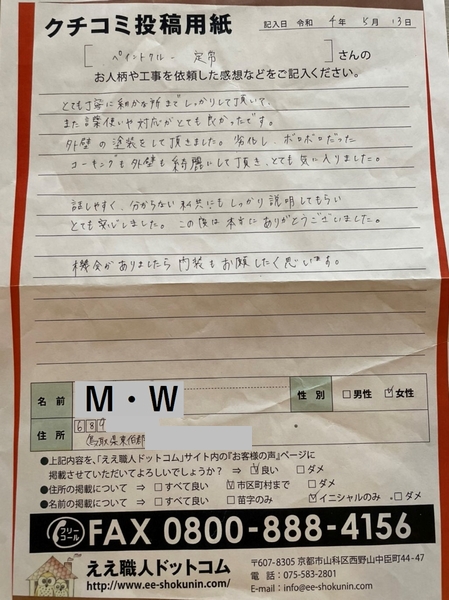 クチコミ投稿用紙
記入日 令和 4年 5月 13日
[ペイントクルー 定常]さんの
お人柄や工事を依頼した感想などをご記入ください。
とても丁寧に細かな所までしっかりして頂いて、
また言葉使いや対応がとても良かったです。
外壁の塗装をして頂きました。劣化し、ボロボロだった
コーキングも外壁も綺麗にして頂き、とても気に入りました。
話しやすく、分からない私共にもしっかり説明してもらい
とても安心しました。この度は本当にありがとうございました。
機会がありましたら内装もお願したく思います。
名前 M・W 性別 □男性 ☑女性
住所 689
鳥取県東伯郡
●上記内容を、「ええ職人ドットコム」サイト内の『お客様の声』ページに
掲載させていただいてよろしいでしょうか? ⇒ ☑良い □ダメ
●住所の掲載について ⇒ □すべて良い ☑市区町村まで □ダメ
●名前の掲載について ⇒ □すべて良い □苗字のみ ☑イニシャルのみ □ダメ
フリーコール FAX 0800-888-4156
ええ職人ドットコム
http://www.ee-shokunin.com/
〒607-8305 京都市山科区西野山中臣町44-47
電話:075-583-2801
E-mail:info@ee-shokunin.com